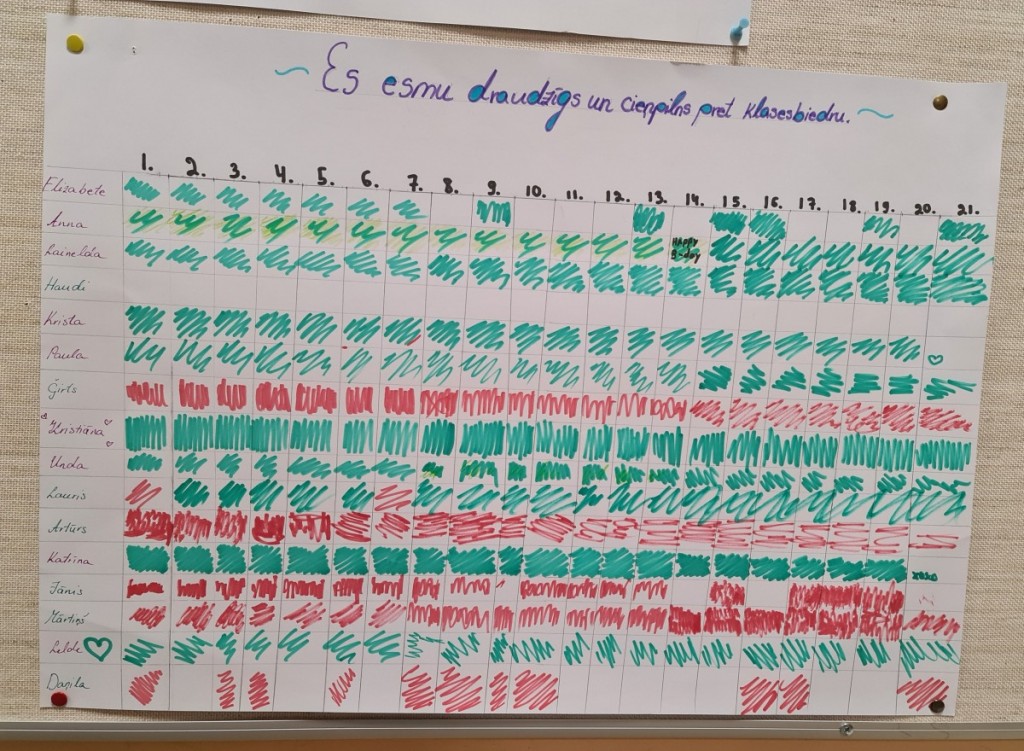 Es esmu draudzīgs un cieņpilns pret klasesbiedru.
1. 2. 3. 4. 5. 6. 7. 8. 9. 10. 11. 12. 13. 14. 15. 16. 17. 18. 19. 20. 21.
Elizabete
Anna
Lainelda
HAPPY
B-day
Haudi
Krista
Paula
Ģirts
Kristiāna
Unda
Lauris
Artūrs
Katrīna
xoxo
Jānis
Mārtiņš
Lelde
Daņila